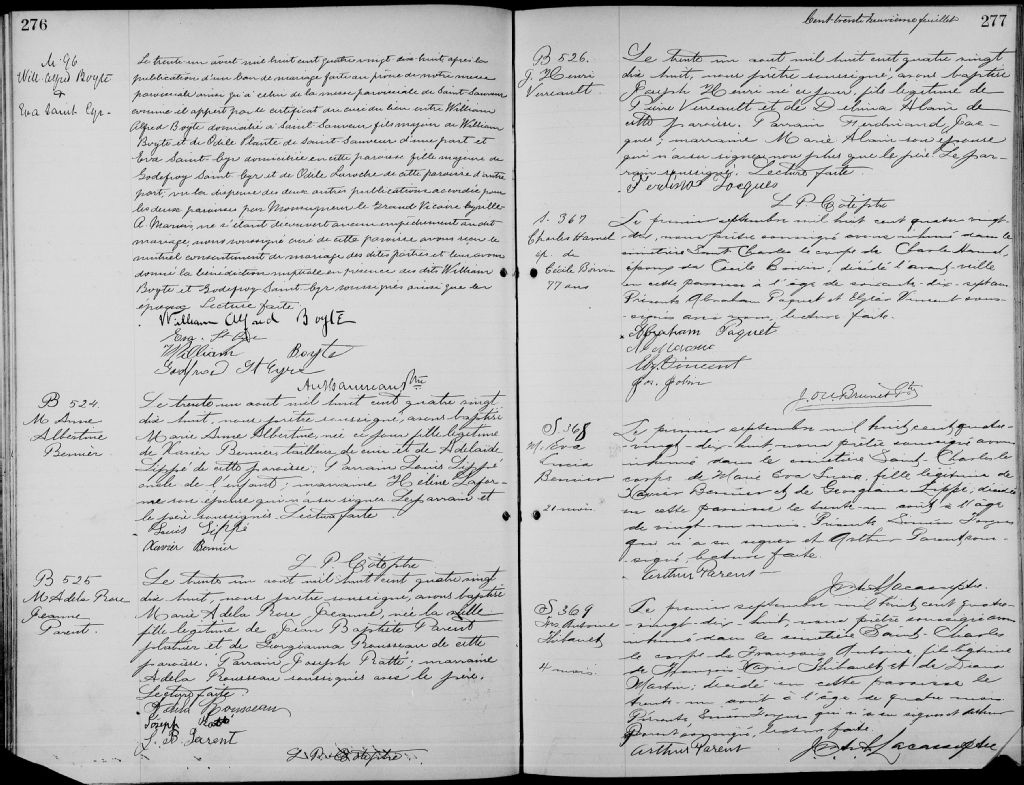 276
M. 96
Will. Alfred Boyte
&
Eva Saint Cyr
Le trente un août mil huit cent quatre vingt dix-huit après la
publication d'un ban de mariage faite au prône de notre messe
paroissiale ainsi qu'à celui de la messe paroissiale de Saint Sauveur
comme il appert par le certificat du curé du lieu entre William
Alfred Boyte domicilié à Saint-Sauveur fils majeur de William
Boyte et de Odile Plante de Saint-Sauveur d'une part et
Eva Saint-Cyr domiciliée en cette paroisse fille majeure de
Godefroy Saint-Cyr et de Odile Laroche de cette paroisse d'autre
part; vu la dispense des deux autres publications accordée pour
les deux paroisses par Monseigneur le Grand Vicaire Cyrille
A Marois, ne s'étant découvert aucun empêchement au dit
mariage, nous soussigné curé de cette paroisse avons reçu le
mutuel consentement de mariage des dites parties et leur avons
donné la bénédiction nuptiale en présence des dits William
Boyte et Godefroy Saint-Cyr soussignés ainsi que les
époux. Lecture faite.
William Alfred Boyte
Eva St Cyr
William Boyte
Godfroid St Cyre
B 524
M. Anne
Albertine
Bernier
Le trente un août mil huit cent quatre vingt
dix huit, nous prêtre soussigné, avons baptisé
Marie Anne Albertine, née ce jour, fille légitime
de Xavier Bernier, tailleur de cuir et de Adelaide
Lippé de cette paroisse. Parrain Louis Lippé
oncle de l'enfant; marraine Hélène Lafor-
me son épouse qui n'a su signer. Le parrain et
le père soussignés. Lecture faite.
Louis Lippé
Xavier Bernier
L P Côté ptre
B 525
M Adela Rose
Jeanne
Parent.
Le trente un août mil huit cent quatre vingt
dix huit, nous prêtre soussigné, avons baptisé
Marie Adela Rose Jeanne, née la veille
fille légitime de Jean Baptiste Parent
platrier et de Georgianna Rousseau de cette
paroisse. Parrain Joseph Ratté; marraine
Adela Rousseau soussignés avec le père.
Lecture faite.
Rousseau
Joseph Ratté
J. B Parent
L. P. Côté ptre
Cent trente neuvième feuillet
277
B 526.
J. Henri
Vereault
Le trente un août mil huit cent quatre vingt
dix huit, nous prêtre soussigné, avons baptisé
Joseph Henri né ce jour, fils légitime de
Pierre Vereault et de Delvina Alain de
cette paroisse. Parrain Ferdinand Jac-
ques; marraine Marie Alain son épouse
qui n'a su signer non plus que le père. Le par-
rain soussigné. Lecture faite.
Jacques
L P Côté ptre
S. 367
Charles Hamel
ép. de
Cécile Boivin
77 ans
Le premier septembre mil huit cent quatre vingt-
dix, nous prêtre soussigné avons inhumé dans le
cimetière Saint Charles le corps de Charles Hamel,
époux de Cécile Boivin; décédé l'avant-veille
en cette paroisse à l'âge de soixante-dix-sept ans.
Présents Abraham Paquet et Elzéar Vincent sous-
signés avec nous, lecture faite.
Abraham Paquet
Elz. Vincent
Jos. Jobin
J. O. Brunet Ptre
S 368
M. Eva
Lucia
Bernier
21 mois.
Le premier septembre mil huit cent quatre-
vingt-dix-huit, nous prêtre soussigné avons
inhumé dans le cimetière Saint Charles le
corps de Marie Eva Lucia, fille légitime de
Xavier Bernier et de Georgiana Lippé, décédée
en cette paroisse le trente-un août à l'âge
de vingt-un mois. Présents
qui n'a su signer et Arthur Parent, sous-
signé, lecture faite.
Arthur Parent
S 369
Frs Antoine
Thibault,
4 mois.
Le premier septembre mil huit cent quatre-
vingt-dix-huit, nous prêtre soussigné avons
inhumé dans le cimetière Saint-Charles
le corps de François Antoine, fils légitime
de François Xavier Thibault et de Diana
Martin; décédé en cette paroisse le
trente-un août à l'âge de quatre mois.
Présents, qui n'a su signer et Arthur
Parent soussigné, lecture faite
Arthur Parent